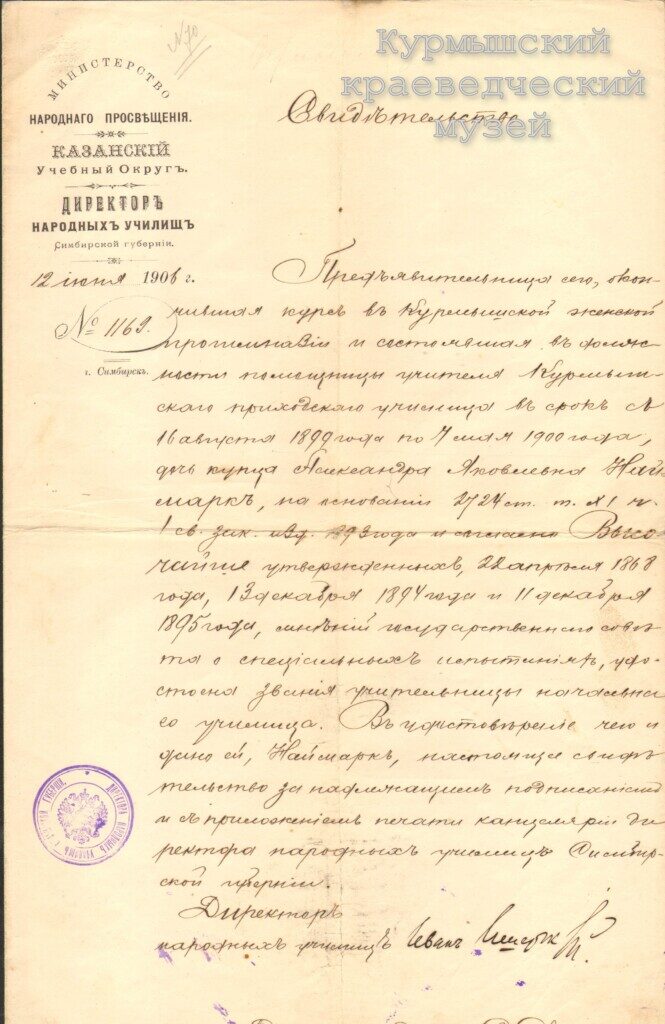 Курмышский
краеведческий
музей
МИНИСТЕРСТВО
НАРОДНАГО ПРОСВѢЩЕНІЯ.
КАЗАНСКІЙ
Учебный Округъ.
ДИРЕКТОРЪ
НАРОДНЫХЪ УЧИЛИЩЪ
Симбирской губерніи.
12 іюня 1906 г.
№ 1169.
г. Симбирскъ.
Свидѣтельство
Предъявительница сего, окон-
чившая курсъ въ Курмышской женской
прогимназіи и состоявшая въ долж-
ности помощницы учителя Курмыш-
скаго приходскаго училища въ срокъ съ
16 августа 1899 года по 7 мая 1900 года,
дочь купца Александра Яковлевна Най-
маркъ, на основаніи 2724 ст. т. XI ч.
1 св. зак. изд. 1893 года и согласно Высо-
чайше утвержденныхъ, 22 апрѣля 1868
года, 13 декабря 1894 года и 11 декабря
1895 года, мнѣній государственнаго совѣ-
та о спеціальныхъ испытаніяхъ, удо-
стоена званія учительницы начальна-
го училища. Въ удостовѣреніе чего и
дано ей, Наймаркъ, настоящее свидѣ-
тельство за надлежащимъ подписаніемъ
и съ приложеніемъ печати канцеляріи ди-
ректора народныхъ училищъ Симбир-
ской губерніи.
Директоръ
народныхъ училищъ Иванъ